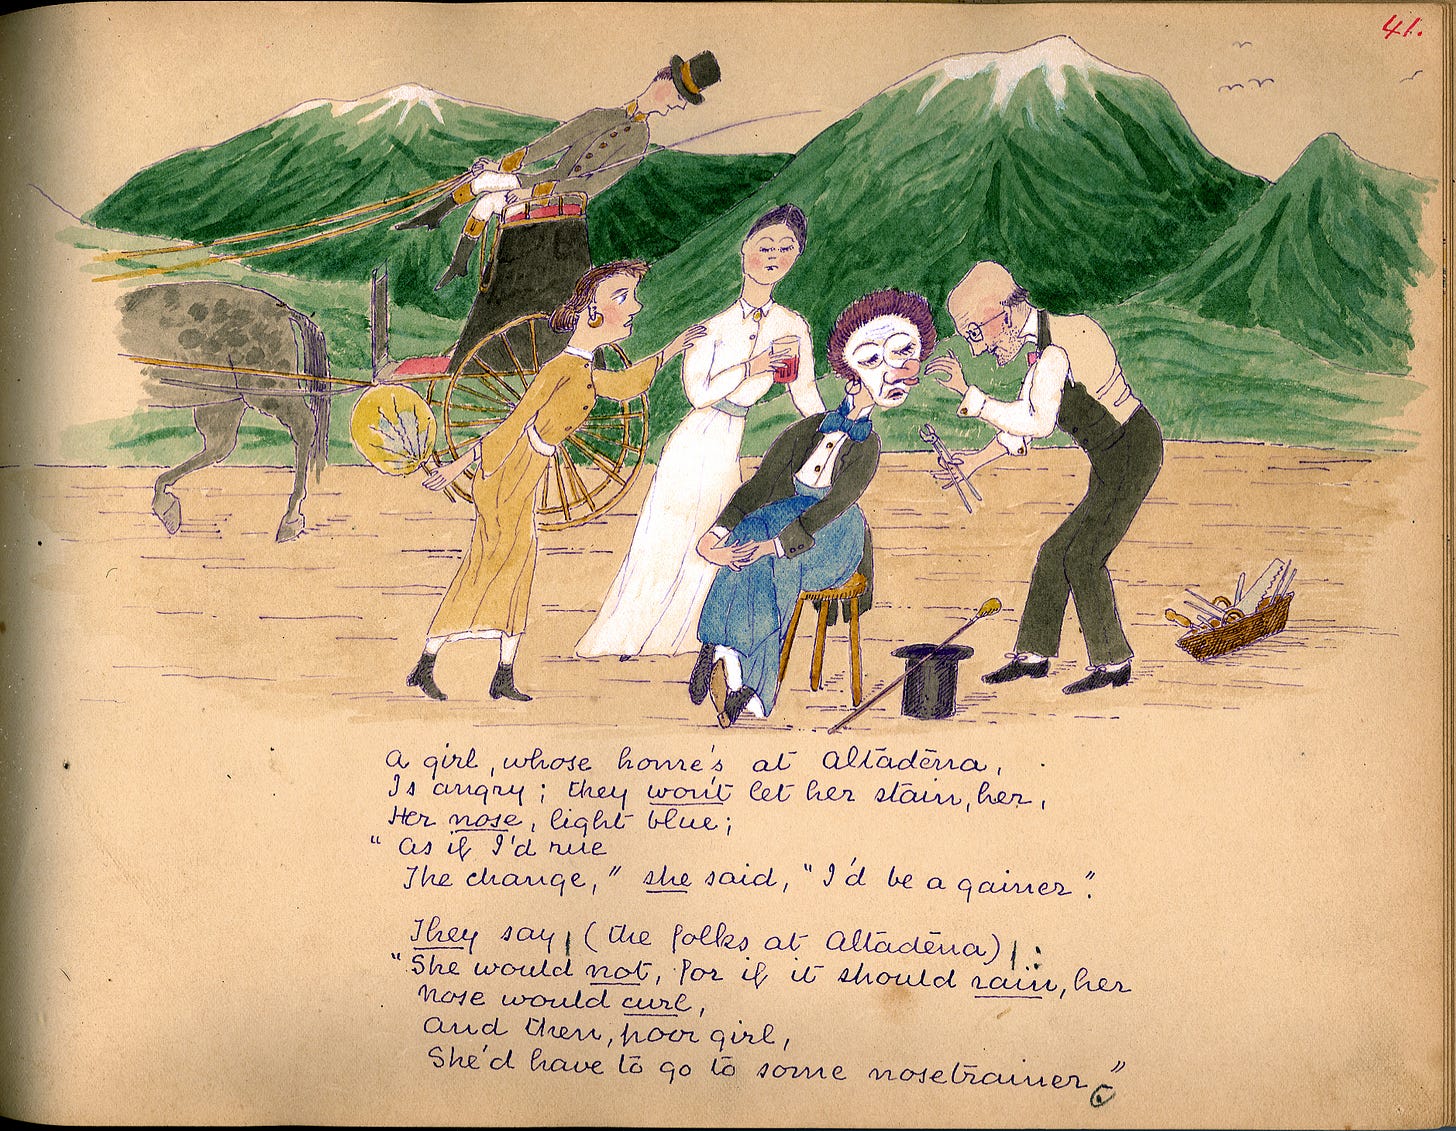 41.
A girl, whose home's at Altādēna,
Is angry; they won't let her stain, her,
Her nose, light blue;
"As if I'd rue
The change," she said, "I'd be a gainer".
They say, (the folks at Altādēna) | :
"She would not, for if it should rain, her
nose would curl,
And then, poor girl,
She'd have to go to some nosetrainer."